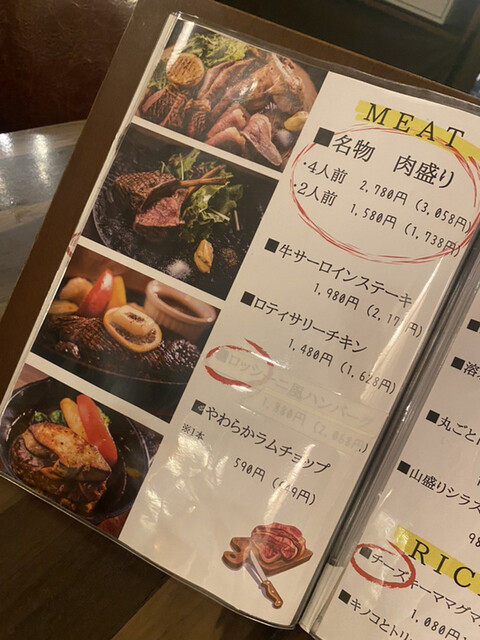 MEAT
■名物 肉盛り
・4人前 2,780円(3,058円)
・2人前 1,580円(1,738円)
■牛サーロインステーキ
1,980円(2,17
■ロティサリーチキン
1,480円(1,628円)
■ロッシーニ風ハンバーグ
■やわらかラムチョップ
※1本 590円(649円)
■
■溶
■丸ごと
■山盛りシラス
98
RIC
■チーズキーママグマ
■キノコとトリ
1,080円